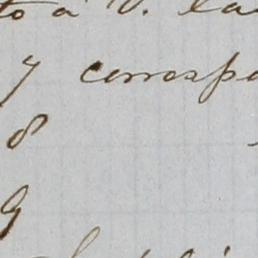 to a V. la
7 correspo
8
9